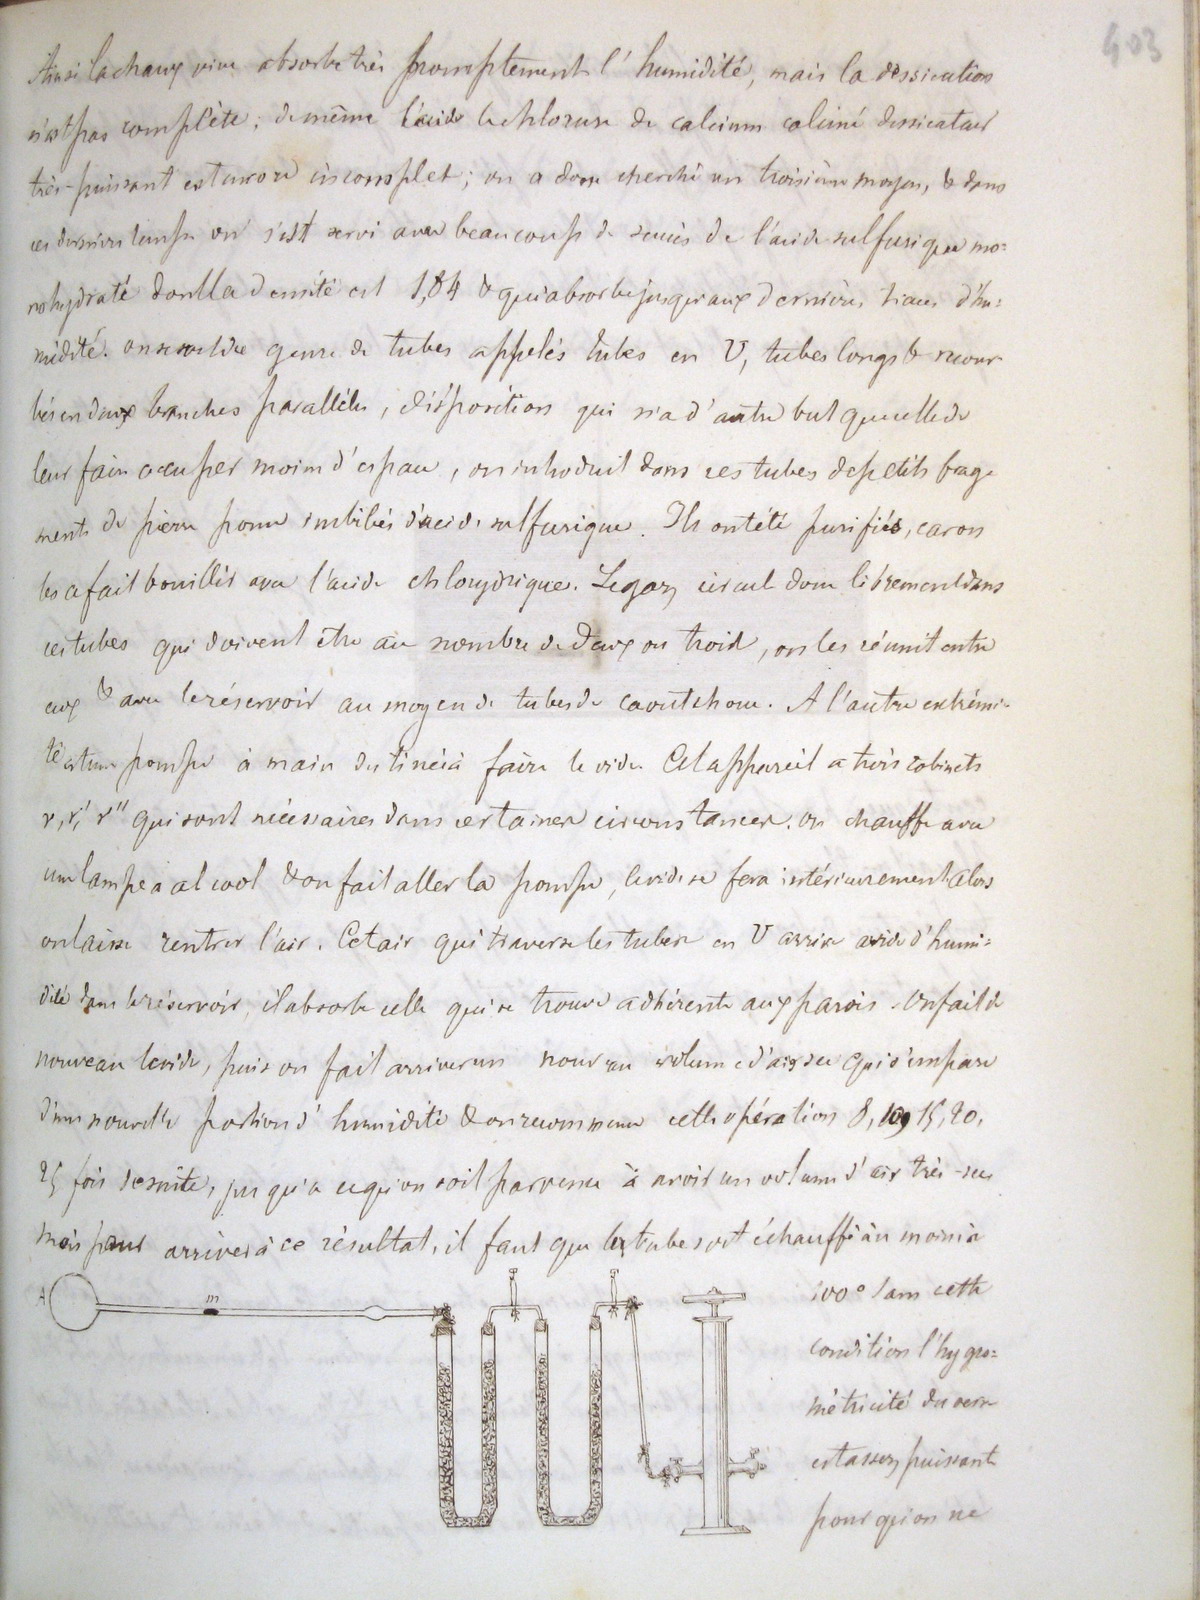 403
Ainsi la chaux vive absorbe très promptement l'humidité, mais la dessication
n'est pas complète ; de même l'acide le chlorure de calcium calciné dessicateur
très-puissant est encore incomplet ; on a donc cherché un troisième moyen, & dans
ces derniers temps on s'est servi avec beaucoup de succès de l'acide sulfurique mo=
nohydraté dont la densité est 1,84 & qui absorbe jusqu'aux dernières traces d'hu=
midité. on se sert de genre de tubes appelés tubes en U, tubes longs & recour
bés en deux branches parallèles, disposition qui n'a d'autre but que celle de
leur faire occuper moins d'espace, on introduit dans ces tubes de petits frag
ments de pierre ponce imbibés d'acide sulfurique. Ils ont été purifiés, car on
les a fait bouillir avec l'acide chlorydrique. Le gaz circule donc librement dans
ces tubes qui doivent être au nombre de deux ou trois, on les réunit entre
eux & avec le réservoir au moyen de tubes de caoutchouc. A l'autre extrémi-
té est une pompe à main destinée à faire le vide Cet appareil a trois robinets
r, r', r'' qui sont nécessaires dans certaines circonstances. on chauffe avec
une lampe à alcool & on fait aller la pompe, le vide se fera intérieurement alors
on laisse rentrer l'air. Cet air qui traverse les tubes en U arrive avide d'humi=
dité dans le réservoir, il absorbe celle qui se trouve adhérente aux parois. On fait de
nouveau le vide, puis on fait arriver un nouveau volume d'air sec qui s'empare
d'une nouvelle portion d'humidité & on recommence cette opération 8, 10, 15, 20,
25 fois de suite, jusqu'à ce qu'on soit parvenu à avoir un volume d'air très-sec
mais pour arriver à ce résultat, il faut que le tube soit échauffé au moins à
A
m
100° sans cette
condition l'hygro=
métricité du verre
est assez puissante
pour qu'on ne